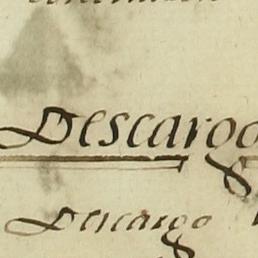 Descargo
Descargo